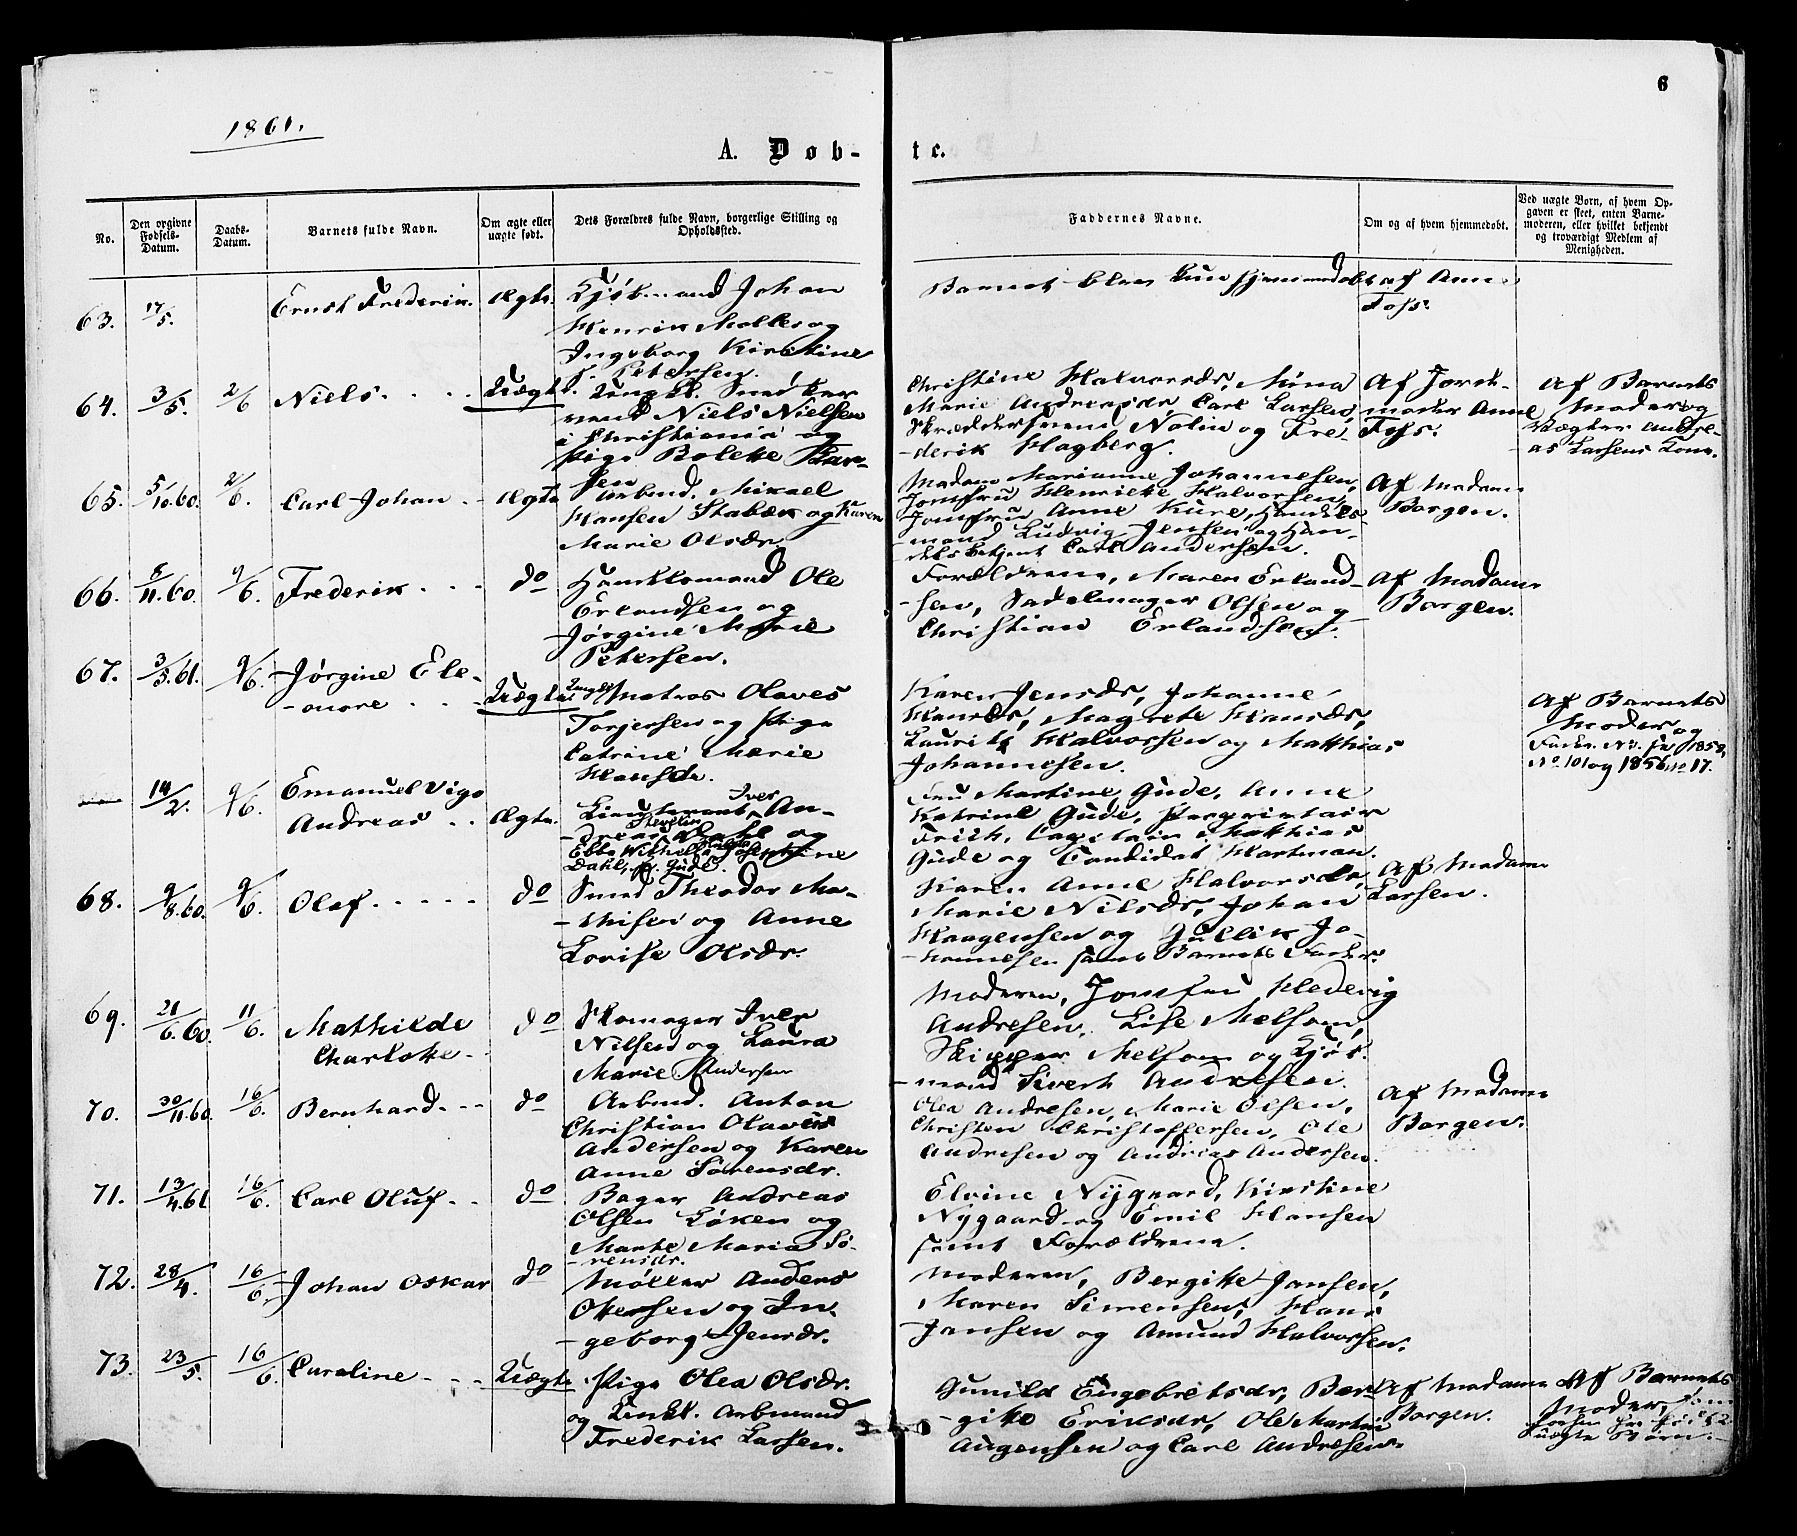 6
1861.
A. Døb-
te.
No.
Den opgivne Fødsels-Datum.
Daabs-Datum.
Barnets fulde Navn.
Om ægte eller uægte født.
Dets Forældres fulde Navn, borgerlige Stilling og Opholdssted.
Faddernes Navne.
Om og af hvem hjemmedøbt.
Ved uægte Børn, af hvem Opgaven er skeet, enten Barnemoderen, eller hvilket bekjendt og troværdigt Medlem af Menigheden.
63. 17/5. Ernst Frederik. Ægte.
Kjøbmand Johan
Henrik Møller og
Ingeborg Kirstine
Petersen.
Barnet blev kun hjemmedøbt af Anne
Foss.
64. 3/5. 2/6 Niels. Uægte
Ungk. Smed
Niels Nielsen
i Christiania og
Pige Bolette Lar-
sen
Christine Halvorsdr, Mina
Marie Andreasdr, Carl Larsen,
Skræddersvend Nolin og Fre-
-derik Hagberg.
Af Jord-
moder Anne
Foss.
Af Barnets
Moder og
Vægter Andre-
as Larsens Kone.
65. 5/10.60. 2/6. Carl Johan Ægte
Arbmd. Mikael
Hansen Stabæk og Karen
Marie Olsdr
Madam Marianne Johannesen,
Jomfru Henriette Halvorsen,
Jomfru Anne Kure, Handels-
-mand Ludvig Jensen og Han-
delsbetjent Carl Andersen.
Af Madam
Borgen.
66. 8/11.60. 9/6. Frederik do
Handelsmand Ole
Erlandsen og
Jørgine Marie
Petersen.
Forældrene, Maren Erland-
-sen, Sadelmager Olsen og
Christian Erlandsen.
Af Madam
Borgen.
67. 3/5.61. 9/6. Jørgine Ele-
-onore Uægte
Ungk. Matros Olaves
Torjersen og Pige
Catrine Marie
Hansdr.
Karen Jensdr, Johanne
Hansdr, Magrete Hansdr,
Lauritz Halvorsen og Matthias
Johannesen.
Af Barnets
Moder og
No 101 og 1856 No 17.
14/2. 9/6. Emanuel Vigo
Andreas Ægte.
Lieutenant Iver An-
-dreas Dahl og
Ebba Josephine
Dahl, f. Gude.
Fru Martine Gude, Anne
Katrine Gude, Proprietair
Frich, Capitain Matthias
Gude og Candidat Hartman.
68. 9/8.60. 9/6. Olaf do
Smed Theodor Ma-
-thisen og Anne
Lovise Olsdr.
Karen Anne Halvorsdr,
Marie Nilsdr, Johan
Haagensen og Gullik Jo-
-hannesen samt Barnets Fader.
Af Madam
Larsen.
69. 21/6.60. 11/6. Mathilde
Charlotte do
Skomager Iver
Nilsen og Laura
Marie Andersen
Moderen, Jomfru Hedevig
Andresen, Lise Melsom,
Skipper Melsom og Kjøb-
-mand Sivert Andresen.
70. 30/11.60. 16/6. Bernhard do
Arbmd. Anton
Christian Olaves
Andersen og Karen
Anne Sørensdr.
Olea Andresen, Marie Olsen,
Christen Christoffersen, Ole
Andresen og Andreas Andersen.
Af Madam
Borgen.
71. 13/4.61 16/6. Carl Oluf do
Bager Andreas
Olsen Løken og
Marte Maria Sø-
-rensdr.
Elvine Nygaard, Kirstine
Nygaard og Emil Hansen
samt Forældrene.
72. 28/4. 16/6. Johan Oskar do
Møller Anders
Ottersen og In-
-geborg Jensdr.
Moderen, Bergitte Jansen,
Maren Simensen, Hans
Jansen og Amund Halvorsen.
73. 23/5. 16/6. Caroline Uægte
Pige Olea Olsdr.
og Unkl. Arbmand
Frederik Larsen.
Gunild Engebretsdr, Ber-
-gitte Eriksdr, Ole Martin
Augensen og Carl Andresen.
Af Madam
Borgen.
Af Barnets
Moder, som
uægte Børn.